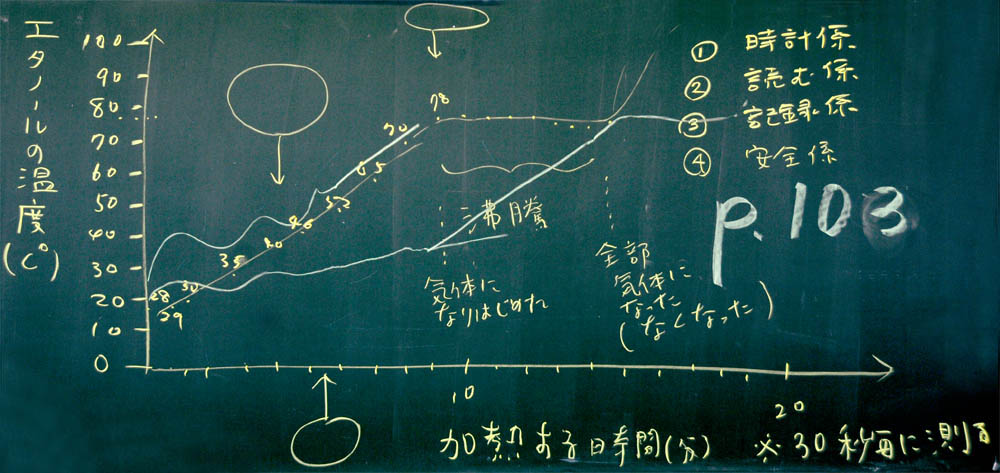 エタノールの温度(C°)
100
90
80
70
60
50
40
30
20
10
0
28
29
30
35
40
46
52
65
70
78
沸騰
気体に
なりはじめた
全部
気体に
なった
(なくなった)
① 時計係
② 読む係
③ 記録係
④ 安全係
p.103
10
20
加熱する時間(分)
※30秒毎に測る